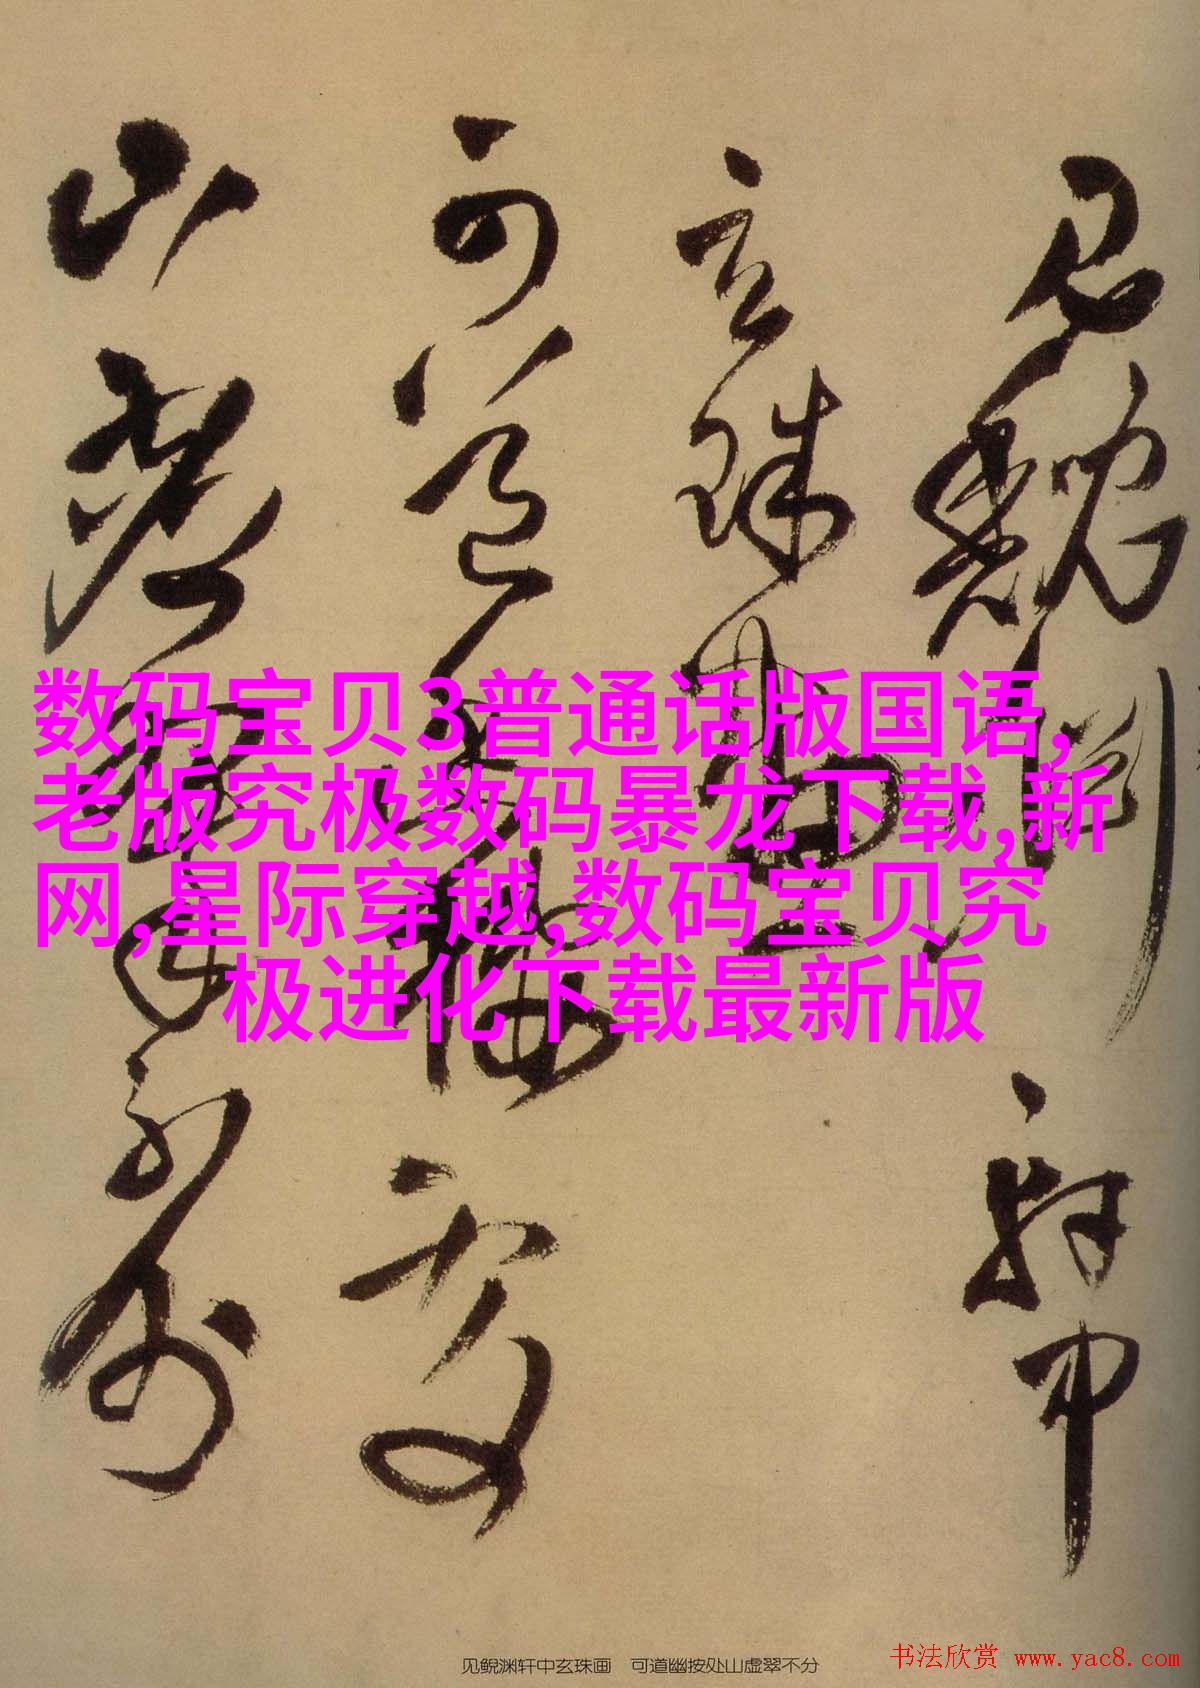 见鲵渊轩中
玄珠画
可道幽
山虚翠不分
数码宝贝3普通话版国语,
老版究极数码暴龙下载,新
网,星际穿越,数码宝贝究
极进化下载最新版
见鲵渊轩中玄珠画 可道幽按处山虚翠不分
书法欣赏 www.yac8.com